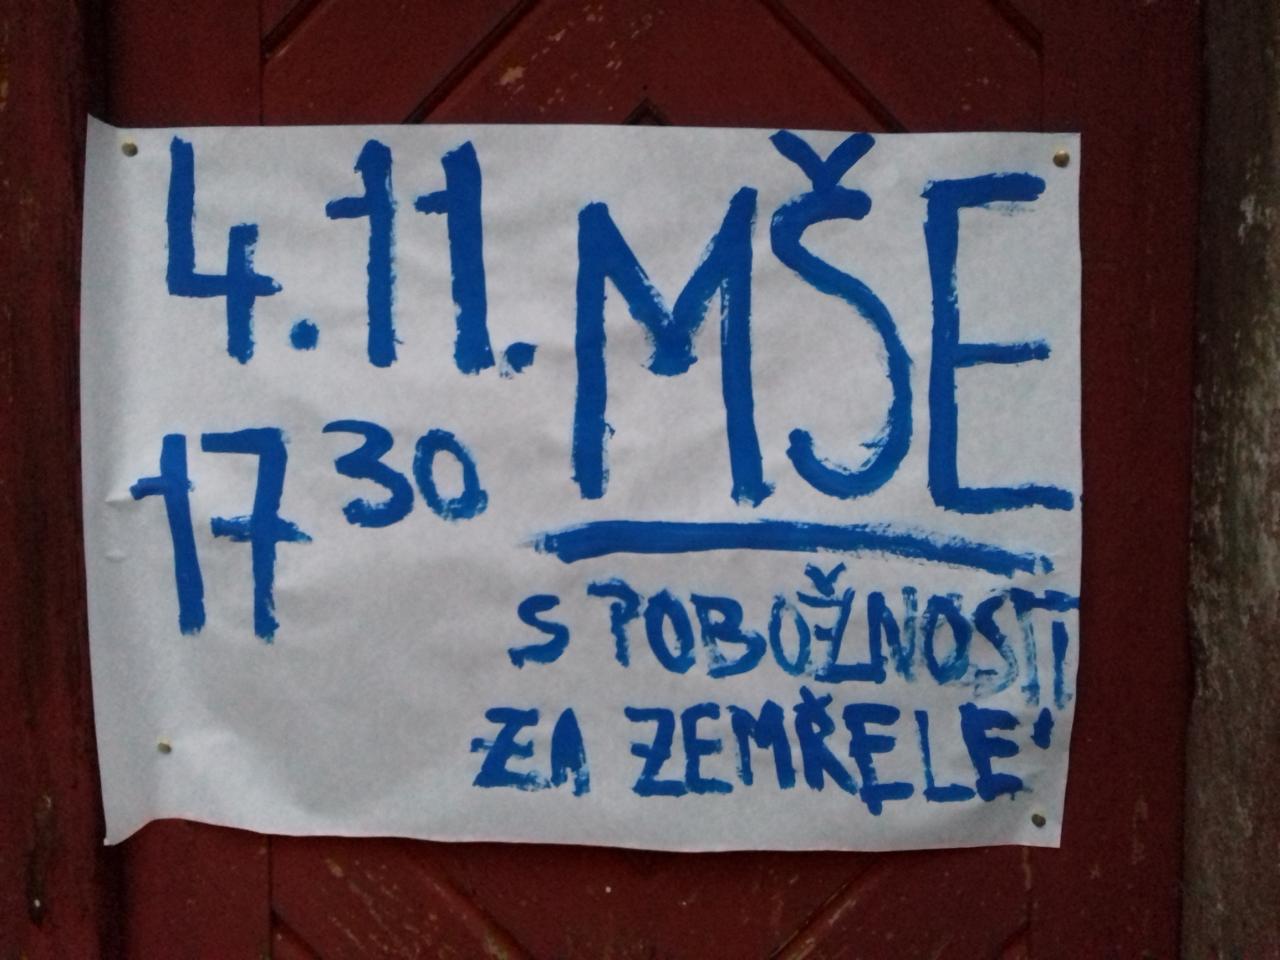 4.11. MŠE
17 30
S POBOŽNOSTÍ
ZA ZEMŘELÉ